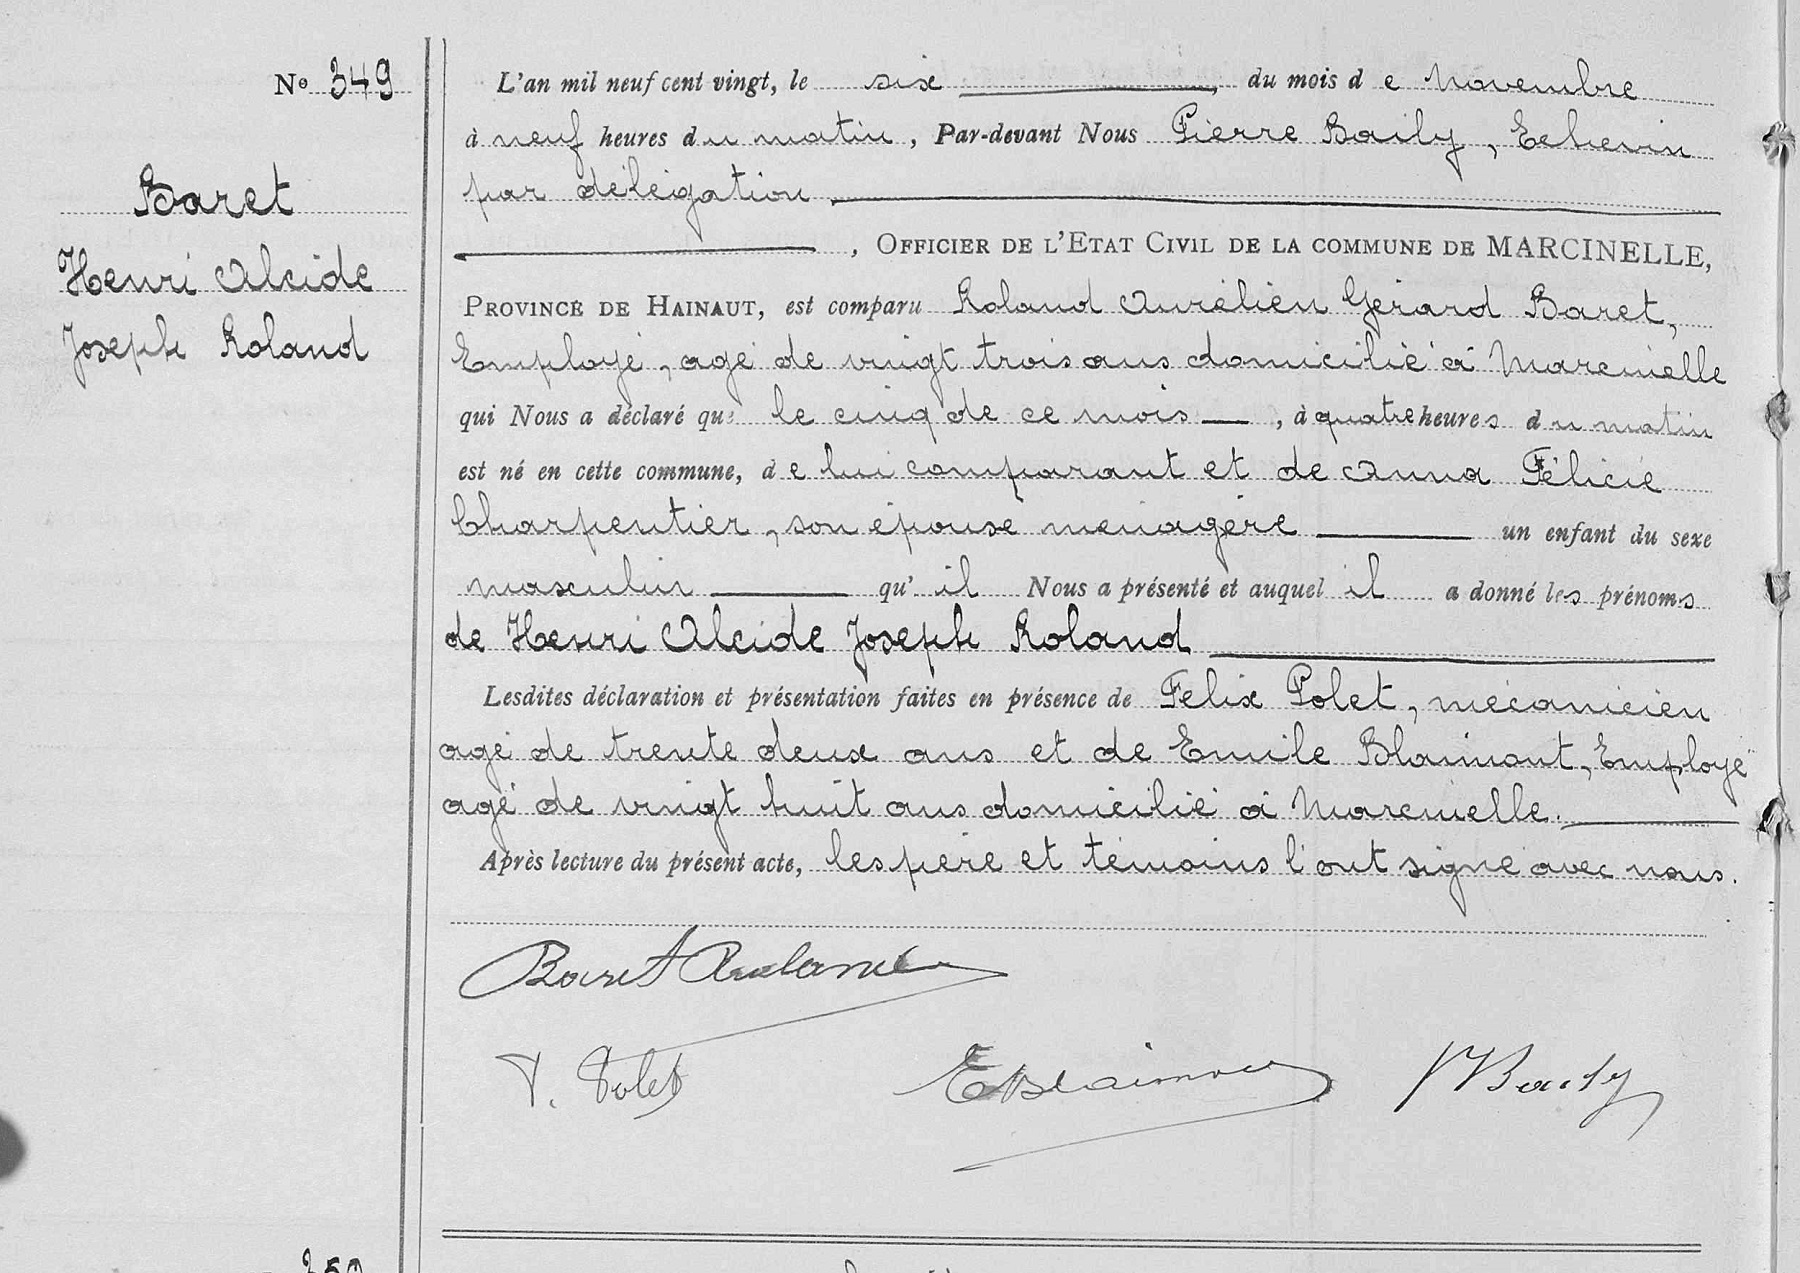 N° 349
Baret
Henri Alcide
Joseph Roland
L'an mil neuf cent vingt, le six, du mois de Novembre
à neuf heures du matin, Par-devant Nous Pierre Baily, Echevin
par délégation
, OFFICIER DE L'ETAT CIVIL DE LA COMMUNE DE MARCINELLE,
PROVINCE DE HAINAUT, est comparu Roland Aurélien Gérard Baret,
Employé, agé de vingt trois ans domicilié à Marcinelle
qui Nous a déclaré que le cinq de ce mois — , à quatre heures du matin
est né en cette commune, de lui comparant et de Anna Félicie
Charpentier, son épouse ménagère un enfant du sexe
masculin qu'il Nous a présenté et auquel il a donné les prénoms
de Henri Alcide Joseph Roland
Lesdites déclaration et présentation faites en présence de Félix Polet, mécanicien
agé de trente deux ans et de Emile Blaimont, Employé
agé de vingt huit ans domicilié à Marcinelle.
Après lecture du présent acte, les père et témoins l'ont signé avec nous.
Baret Roland
F. Polet EBlaimont PBaily
350